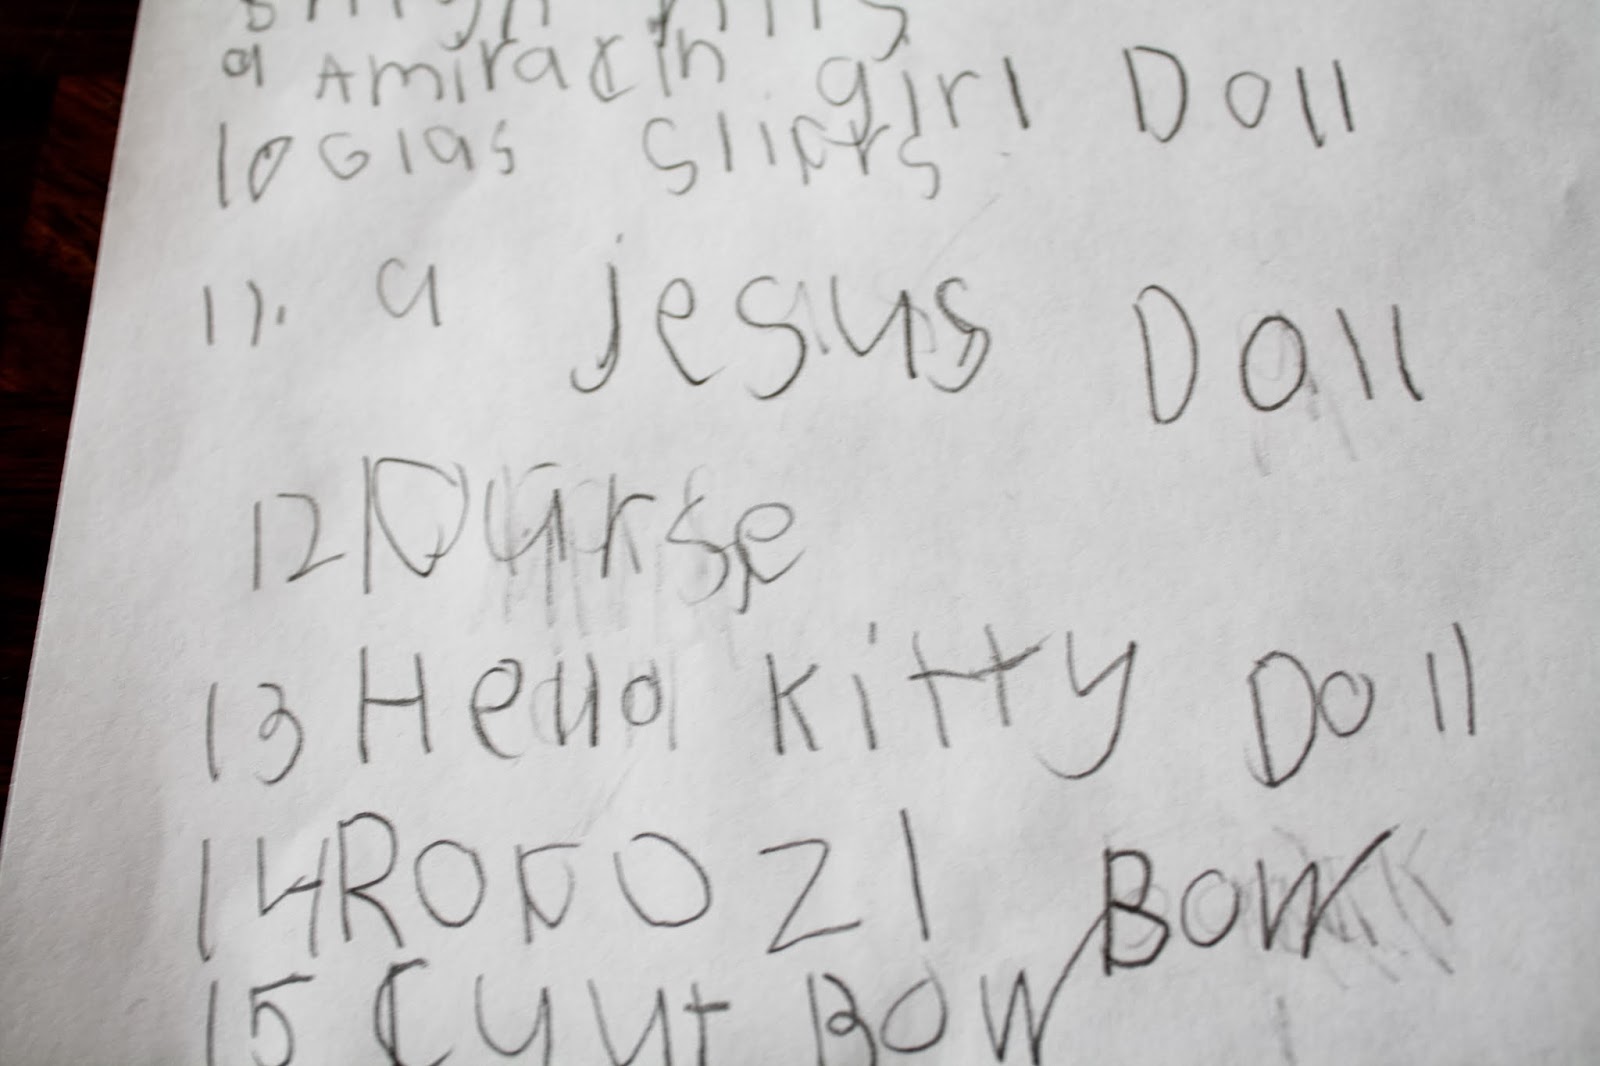 9 Amiracin girl Doll
10 Glas sliprs
11. a jesus Doll
12 Purse
13 Hello Kitty Doll
14 Ropozl Bow
15 Cyut Bow